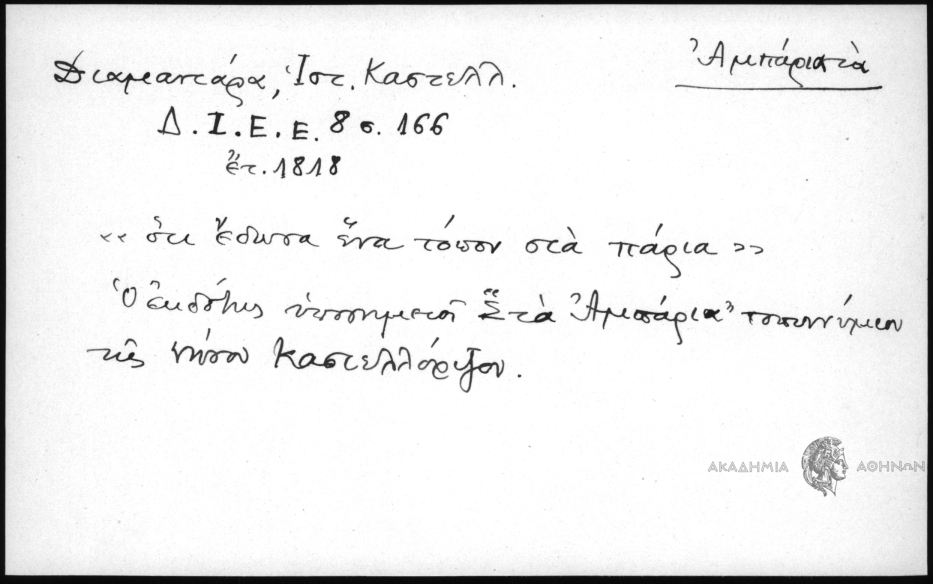 Ἀμπάρια τὰ
Διαμαντάρα, Ἱστ. Καστελλ.
Δ. Ι. Ε. Ε. 8 σ. 166
ἔτ. 1818
«ὅτι ἔδωσα ἕνα τόπον στὰ πάρια»
Ὁ ἐκδότης ὑποσημειοῖ "Στὰ Ἀμπάρια" τοπωνύμιον
τῆς νήσου Καστελλόριζου.
ΑΚΑΔΗΜΙΑ ΑΘΗΝΩΝ